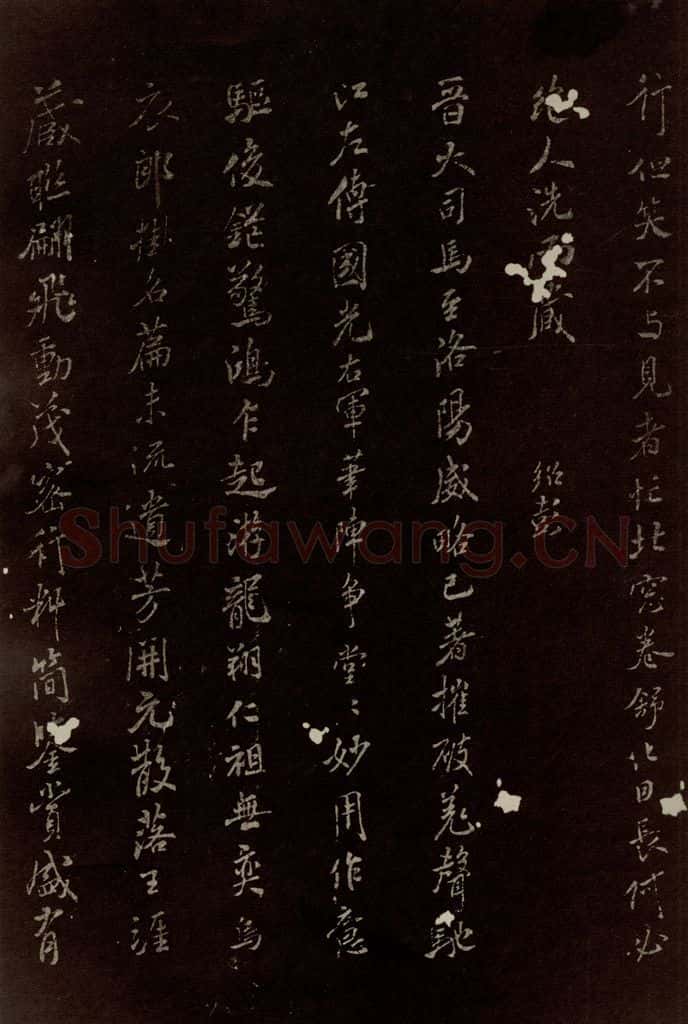 行但笑不与見者忙北窓卷舒化日長何必
絶人洗而藏　　紹彭
晉大司馬至洛陽威略已著摧破羌聲馳
江左傳國光右軍筆陣争堂〻妙用作意
驅俊鋩驚鴻乍起游龍翔仁祖無奕烏
衣郎掛名篇末流遺芳開元散落王涯
藏聯翩飛動茂密行料簡鑒賞盛有
Shufawang.CN